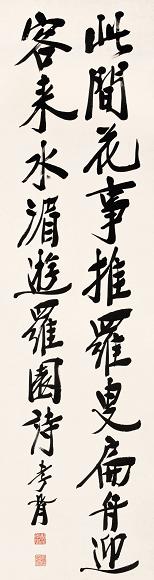 此間花事推羅叟扁舟迎
客来水湄遊羅園詩孝胥